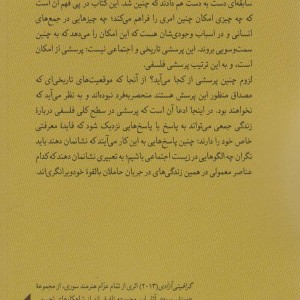 سابقه‌ای دست به دست هم دادند که چنین شد. این کتاب در پی فهم آن است
که چه چیزی امکان چنین امری را فراهم می‌کند؛ چه چیزهایی در جمع‌های
انسانی و در اسباب وجودی‌شان هست که این امکان را می‌دهد که به چنین
سمت‌وسویی بروند. این پرسشی تاریخی و اجتماعی نیست؛ پرسشی از امکان
است، و به این ترتیب پرسشی فلسفی.
لزوم چنین پرسشی از کجا می‌آید؟ از آنجا که موقعیت‌های تاریخی‌ای که
مصداق منظور این پرسش هستند، منحصربه‌فرد نبوده‌اند و به نظر می‌آید که
نخواهند بود. در اینجا ادعا آن است که پرسش در سطح کلی فلسفی دربارهٔ
زندگی جمعی می‌تواند به پاسخ یا پاسخ‌هایی نزدیک شود که فایدهٔ معرفتی
خاص خود را دارند؛ چنین پاسخ‌هایی به این کار می‌آیند که نشانمان دهند باید
نگران چه الگوهایی در زیست اجتماعی باشیم؛ به تعبیری نشانمان دهند که کدام
عناصر معمولی در همین زندگی‌های در جریان حاملان بالقوهٔ خودویرانگری‌اند.
گرافیتی آزادی (۲۰۱۳) اثری از تمام عزام هنرمند سوری، از مجموعهٔ